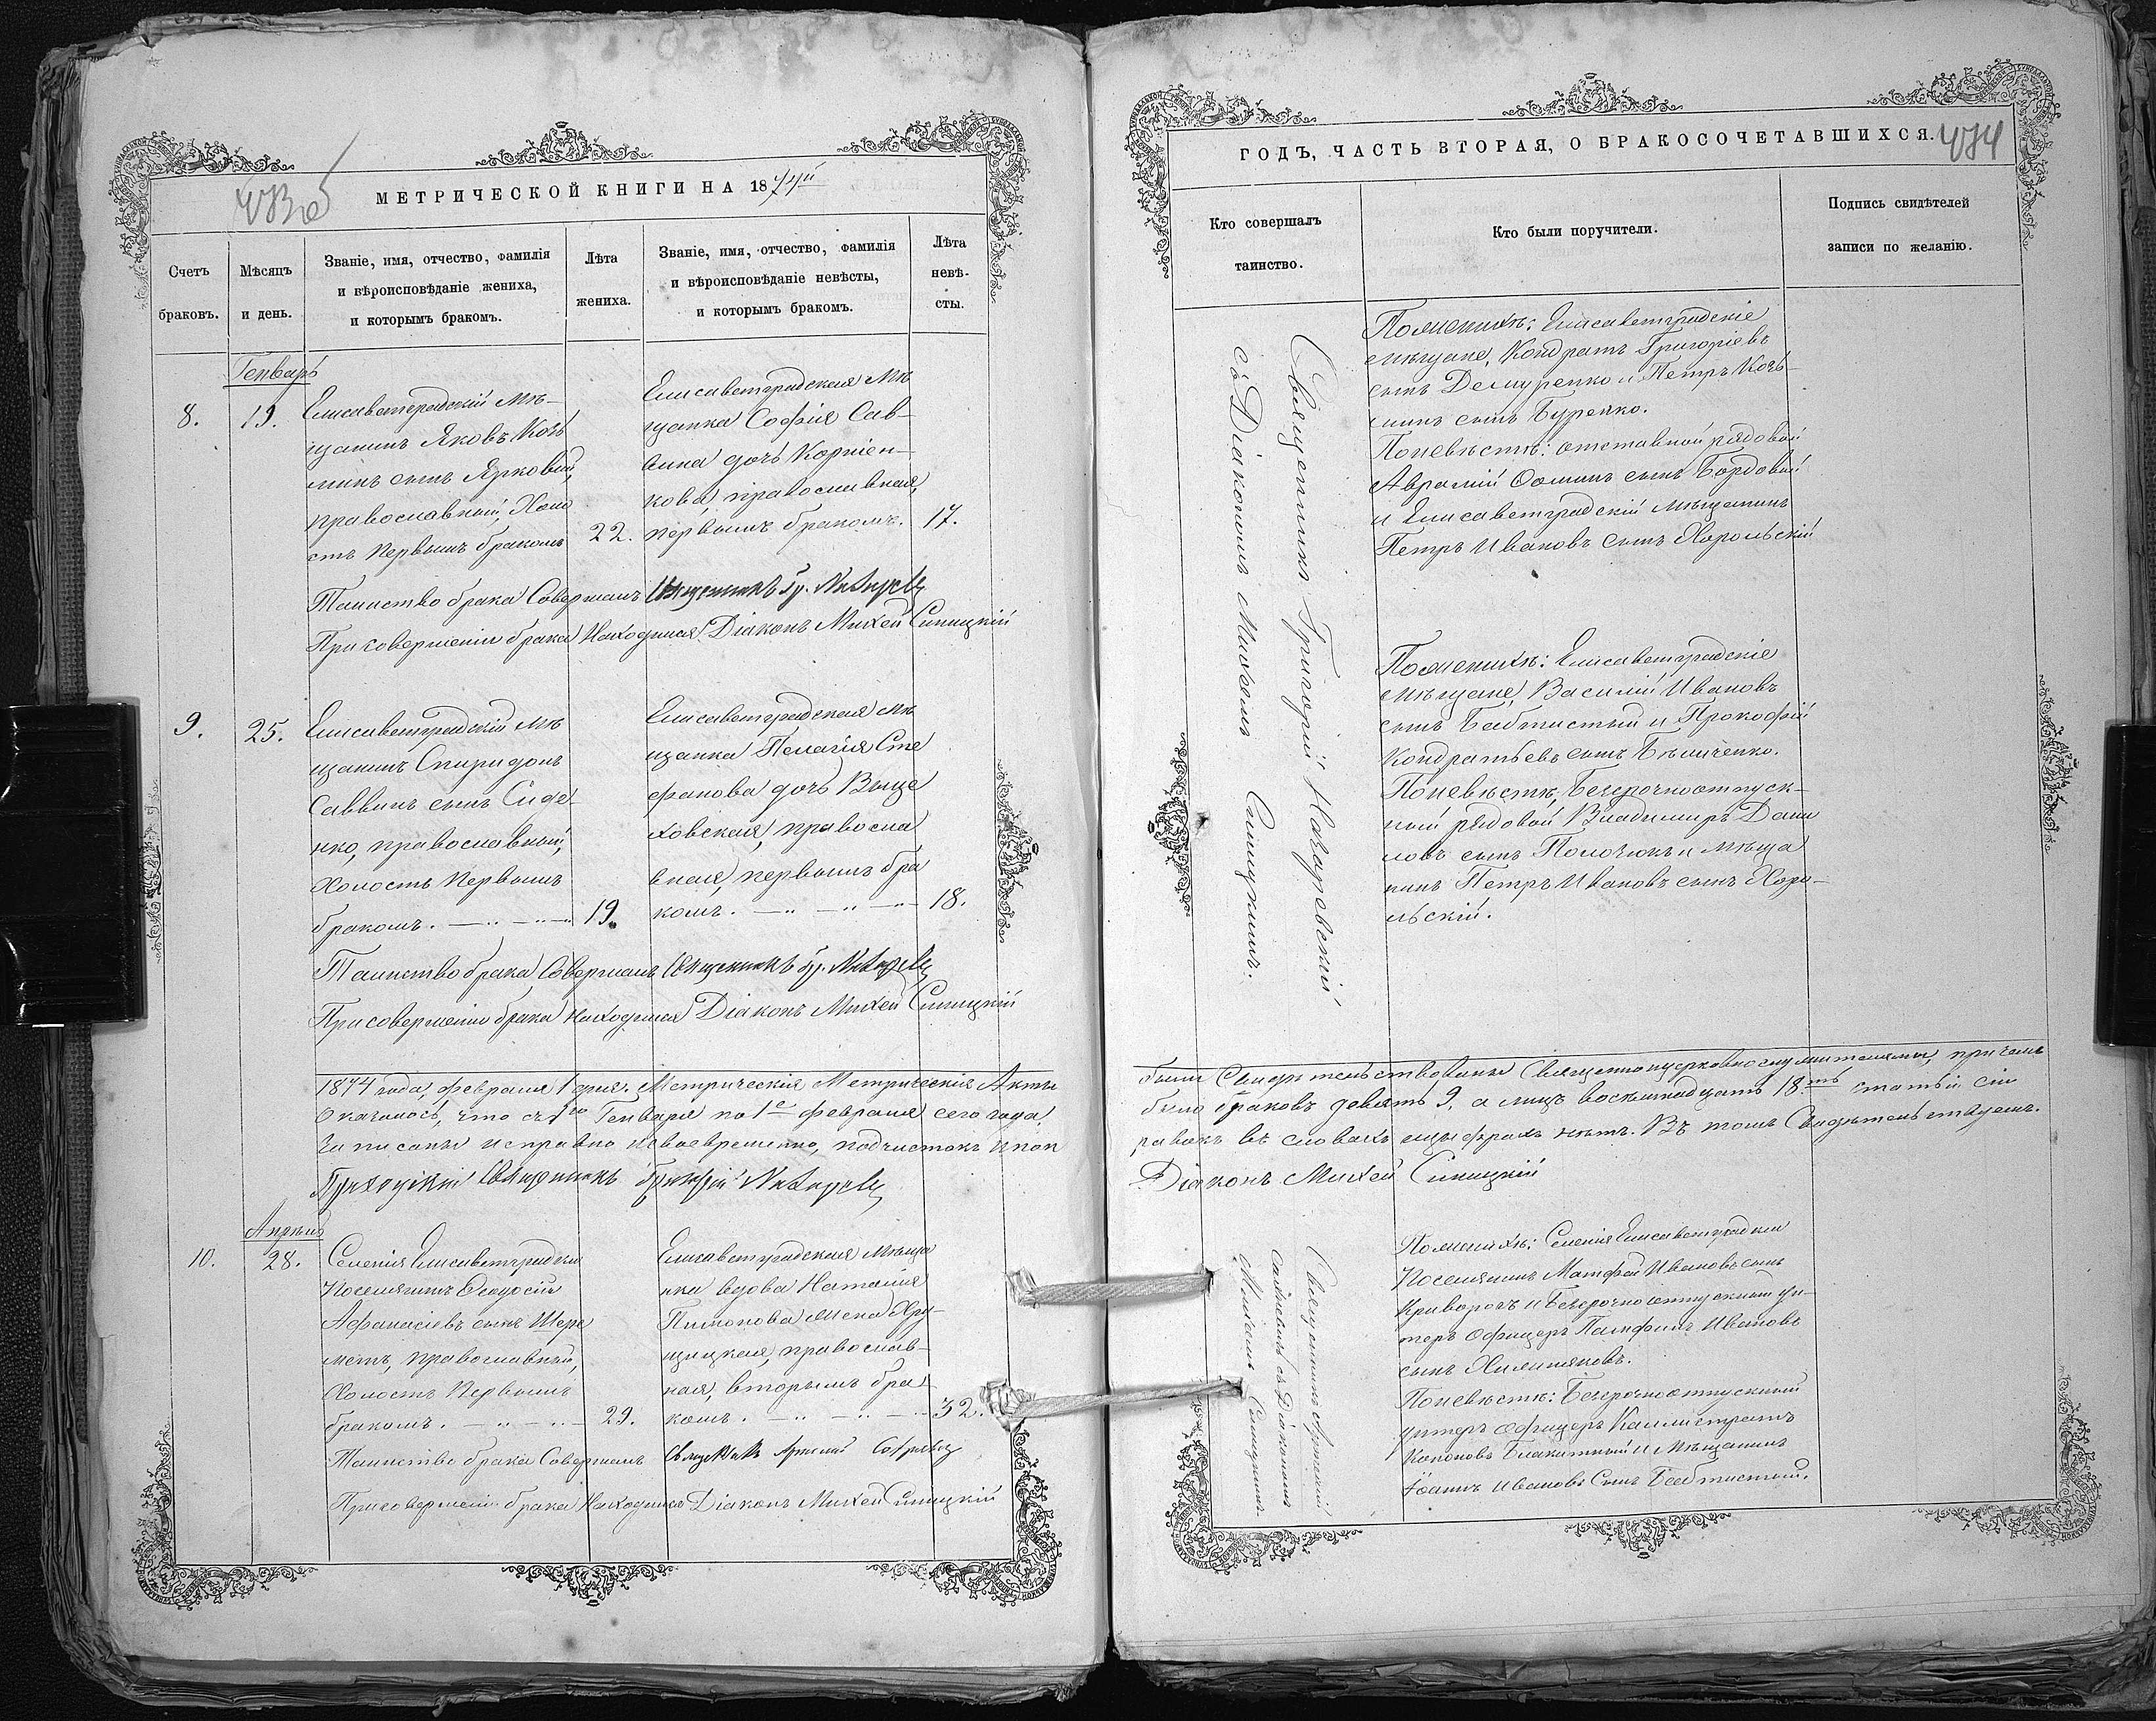 МЕТРИЧЕСКОЙ КНИГИ НА 1874й
Счетъ
браковъ.
Мѣсяцъ
и день.
Званіе, имя, отчество, фамилія
и вѣроисповѣданіе жениха,
и которымъ бракомъ.
Лѣта
жениха.
Званіе, имя, отчество, фамилія
и вѣроисповѣданіе невѣсты,
и которымъ бракомъ.
Лѣта
невѣ-
сты.
Генварь
8.
19.
Елисаветградскій мѣ-
щанинъ Яковъ Козь
минъ сынъ Ярковый,
православный, холо
стъ первымъ бракомъ
22.
Елисаветградская мѣ
щанка Софія Сав-
вина дочь Корніен-
кова, православная,
первымъ бракомъ.
17.
Таинство брака Совершалъ Священникъ Гр.
При совершеніи брака находился Діаконъ Михей Синицкій
9.
25.
Елисаветградскій мѣ
щанинъ Спиридонъ
Саввинъ сынъ Сиде-
нко, православный,
холостъ первымъ
бракомъ.
19.
Елисаветградская мѣ
щанка Пелагія Сте
фанова дочь Выше
ховская, правосла
вная, первымъ бра
комъ.
18.
Таинство брака Совершалъ Священникъ Гр.
При совершеніи брака находился Діаконъ Михей Синицкій
1874 года, февраля 1 дня. Метрическія Метрическія Акты
Оказалось, что съ 1го Генваря по 1е февраля сего года
писаны исправно и своевременно, подчистокъ и поп
Приходскій Священникъ Григорій
Апрѣль
10.
28.
Селенія Елисаветградки
Поселянинъ Феодосій
Афанасіевъ сынъ Шере
метъ, православный,
холостъ первымъ
бракомъ.
29.
Елисаветградская мѣща
нка вдова Наталія
Пимонова жена Хру-
щицкая, православ-
ная, вторымъ бра
комъ.
32.
Таинство брака Совершалъ Священникъ
При совершеніи брака находился Діаконъ Михей Синицкій
ГОДЪ, ЧАСТЬ ВТОРАЯ, О БРАКОСОЧЕТАВШИХСЯ.
Кто совершалъ
таинство.
Кто были поручители.
Подпись свидѣтелей
записи по желанію.
Священникъ Григорій Назаревскій
съ Діакономъ Михеемъ Синицкимъ.
По женихѣ: Елисаветградскіе
мѣщане, Кондратъ Григоріевъ
сынъ Демуренко и Петръ Козь-
минъ сынъ Буренко.
По невѣстѣ: отставной рядовой
Аврамій Фоминъ сынъ Бордовый
и Елисаветградскій мѣщанинъ
Петръ Ивановъ сынъ Хорольскій
По женихѣ: Елисаветградскіе
мѣщане, Василій Ивановъ
сынъ Бабтистый и Прокофій
Кондратьевъ сынъ Бѣличенко.
По невѣстѣ, безсрочноотпуск-
ный рядовой Владимиръ Дани
ловъ сынъ Полочокъ и мѣща
нинъ Петръ Ивановъ сынъ Хоро-
льскій.
были Свидѣтельствованы Священноцерковнослужителями, причемъ
было браковъ девять 9, а лицъ восемнадцать 18.ть статьи сіи
равокъ въ словахъ и цыфрахъ нѣтъ. Въ томъ Свидѣтельствуемъ.
Діаконъ Михей Синицкій
Священникъ Артемій
съ Діакономъ
Михеемъ Синицкимъ.
По женихѣ: Селенія Елисаветградки
Поселянинъ Матфей Ивановъ сынъ
Криворогъ и безсрочноотпускный ун-
теръ офицеръ Памфилъ Ивановъ
сынъ Химиняковъ.
По невѣстѣ: безсрочноотпускный
унтеръ офицеръ Каллистратъ
Кононовъ Блакитный и мѣщанинъ
Іоаннъ Ивановъ Сынъ Бабтистый.